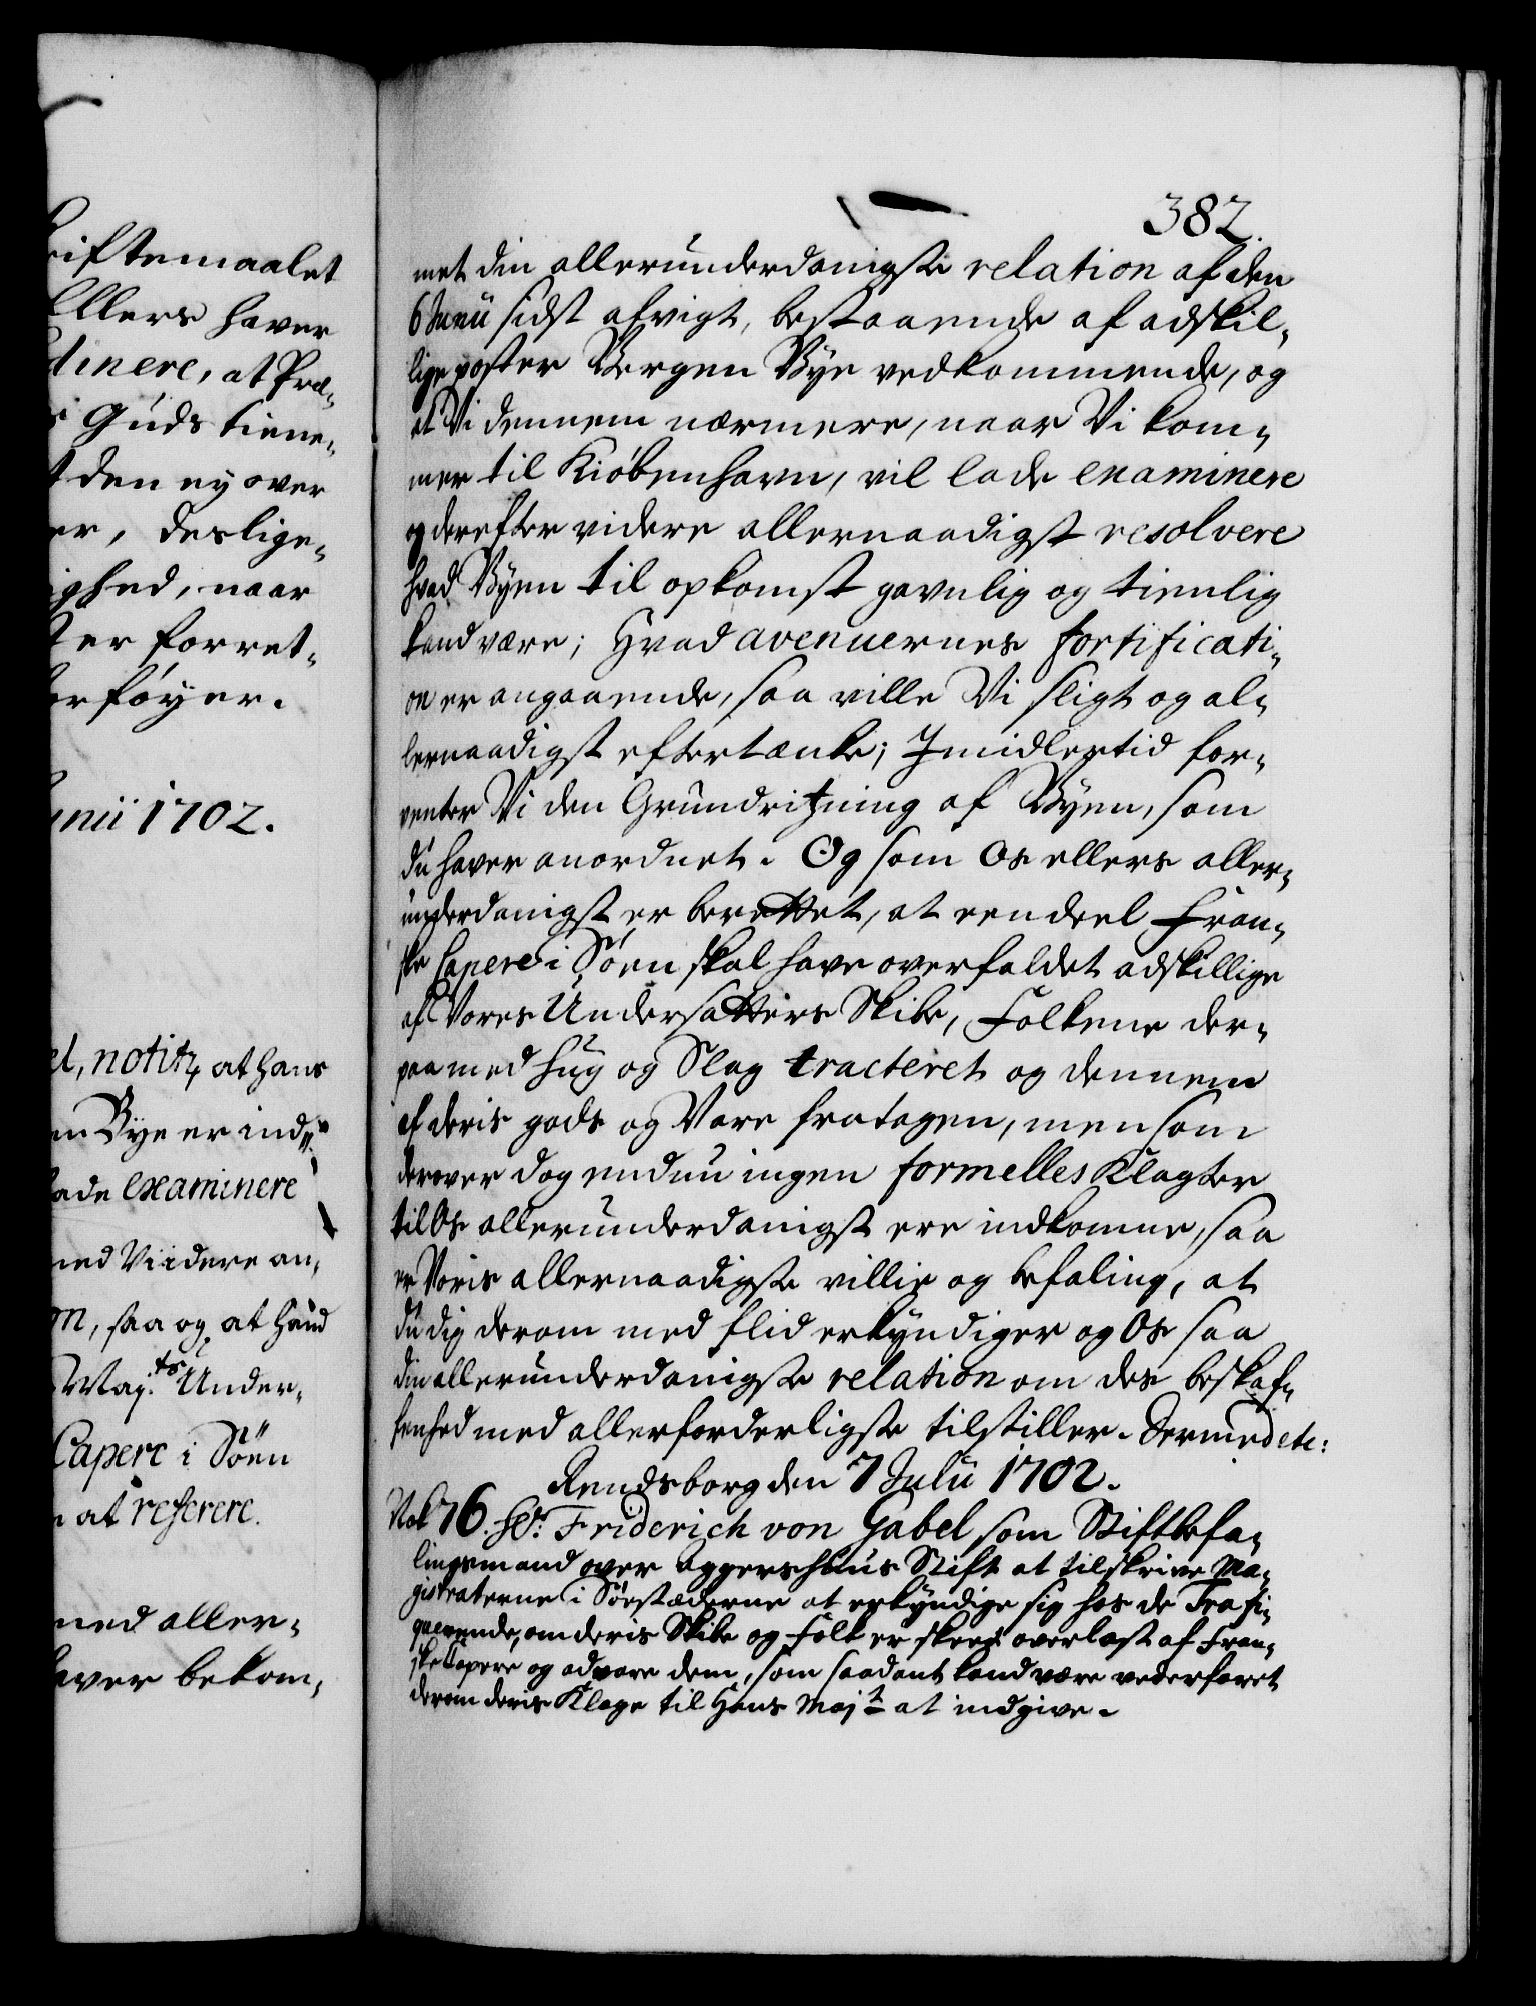 riftemaalet
Ellers haver
dinere, at Præ-
s Guds tiene-
t den ey over
er, deslige-
ighed, naar
ter forret-
erføyer.
unii 1702.
el, notitz, at hans
en Bye er ind-
lade examinere
med Viidere an-
m, saa og at hand
Maj:ts Under-
Capere i Søen
n at referere.
med aller-
haver bekom-
382.
met din allerunderdanigste relation af den
6 Junii sidst afvigt, bestaaende af adskil-
lige poster Bergen Bye vedkommende, og
at Vi dennem nærmere, naar Vi kom-
mer til Kiøbenhavn, vil lade examinere
og derefter videre allernaadigst resolvere
hvad Byen til opkomst gavnlig og tienlig
kand være; Hvad avenuernes fortificati-
oner angaaende, saa ville Vi sligt og al-
lernaadigst eftertænke; Imidlertid for-
venter Vi den Grundritzning af Byen, som
du haver anordnet. Og som Os ellers aller-
underdanigst er berettet, at een deel Fran-
ske Capere i Søen skal have overfaldet adskillige
af Vores Undersatters Skibe, Folkene der-
paa med hug og Slag tracteret og dennem
af deris gods og Vare fratagen, men som
derover dog endnu ingen formelles Klagter
til Os allerunderdanigst ere indkomne, saa
er Voris allernaadigste villie og befaling, at
du dig derom med flid erkyndiger og Os saa
din allerunderdanigste relation om des beskaf-
fenhed med allerforderligste tilstiller. Dermed etc:
Rendsborg den 7 Julii 1702.
No 76. Hr: Friderich von Gabel som Stiftbefa-
lingsmand over Aggershuus Stift at tilskrive Ma-
gistraterne i Søestæderne at erkyndige sig hos de Trafi-
querende, om deris Skibe og folk er skeed overlast af Fran-
ske Capere og advare dem, som saadant kand være vederfaret
derom deris Klage til Hans Majt at indgive.